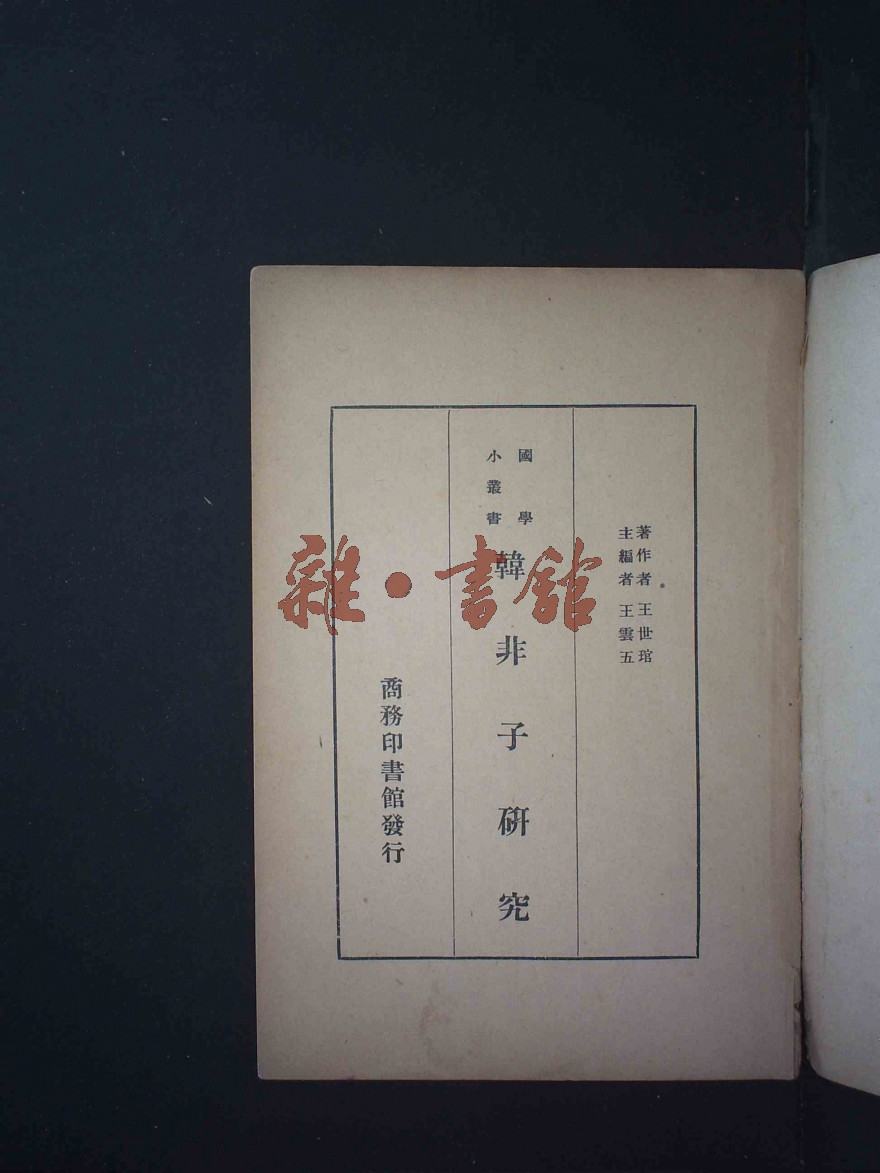 著作者 王世琯
主編者 王雲五
國學
小叢書
韓非子研究
商務印書館發行
雜·書館